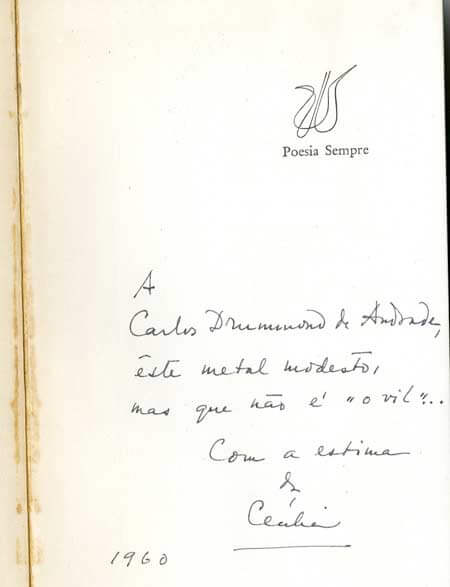 Poesia Sempre
A
Carlos Drummond de Andrade,
êste metal modesto,
mas que não é "o vil"...
Com a estima
de
Cecília
1960